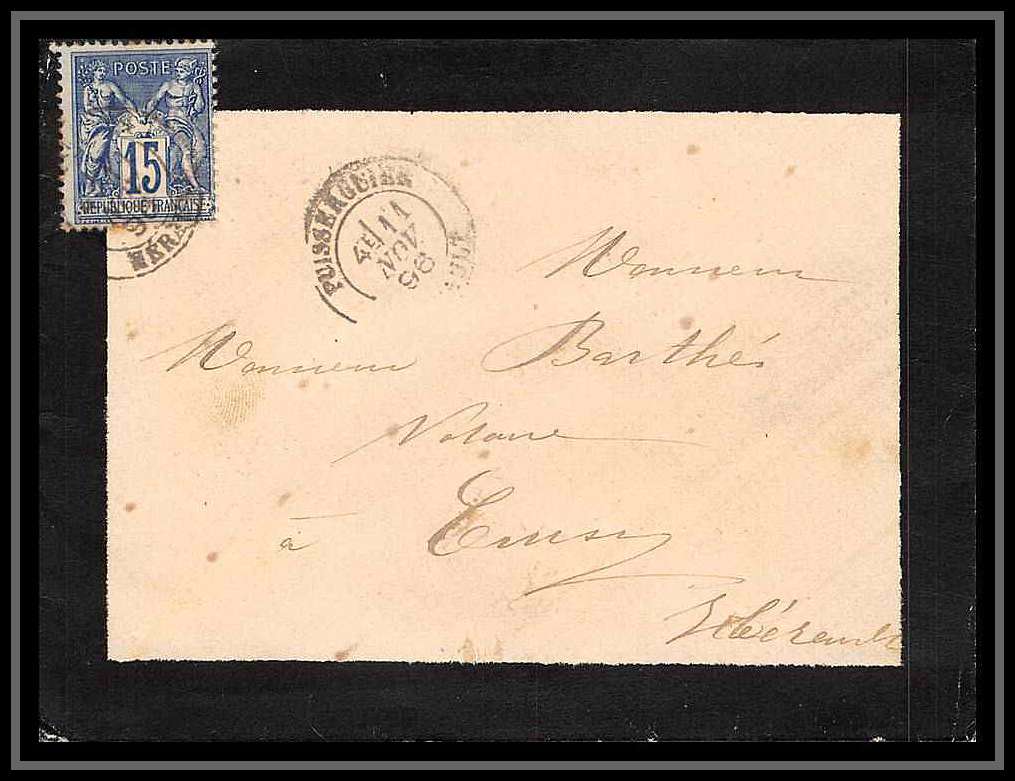 POSTE
15
REPUBLIQUE FRANÇAISE
HÉRA
PUISSERGUIER
4E 11
NOV
98
Monsieur
Monsieur Barthés
Notaire
à Cruzy
Hérault